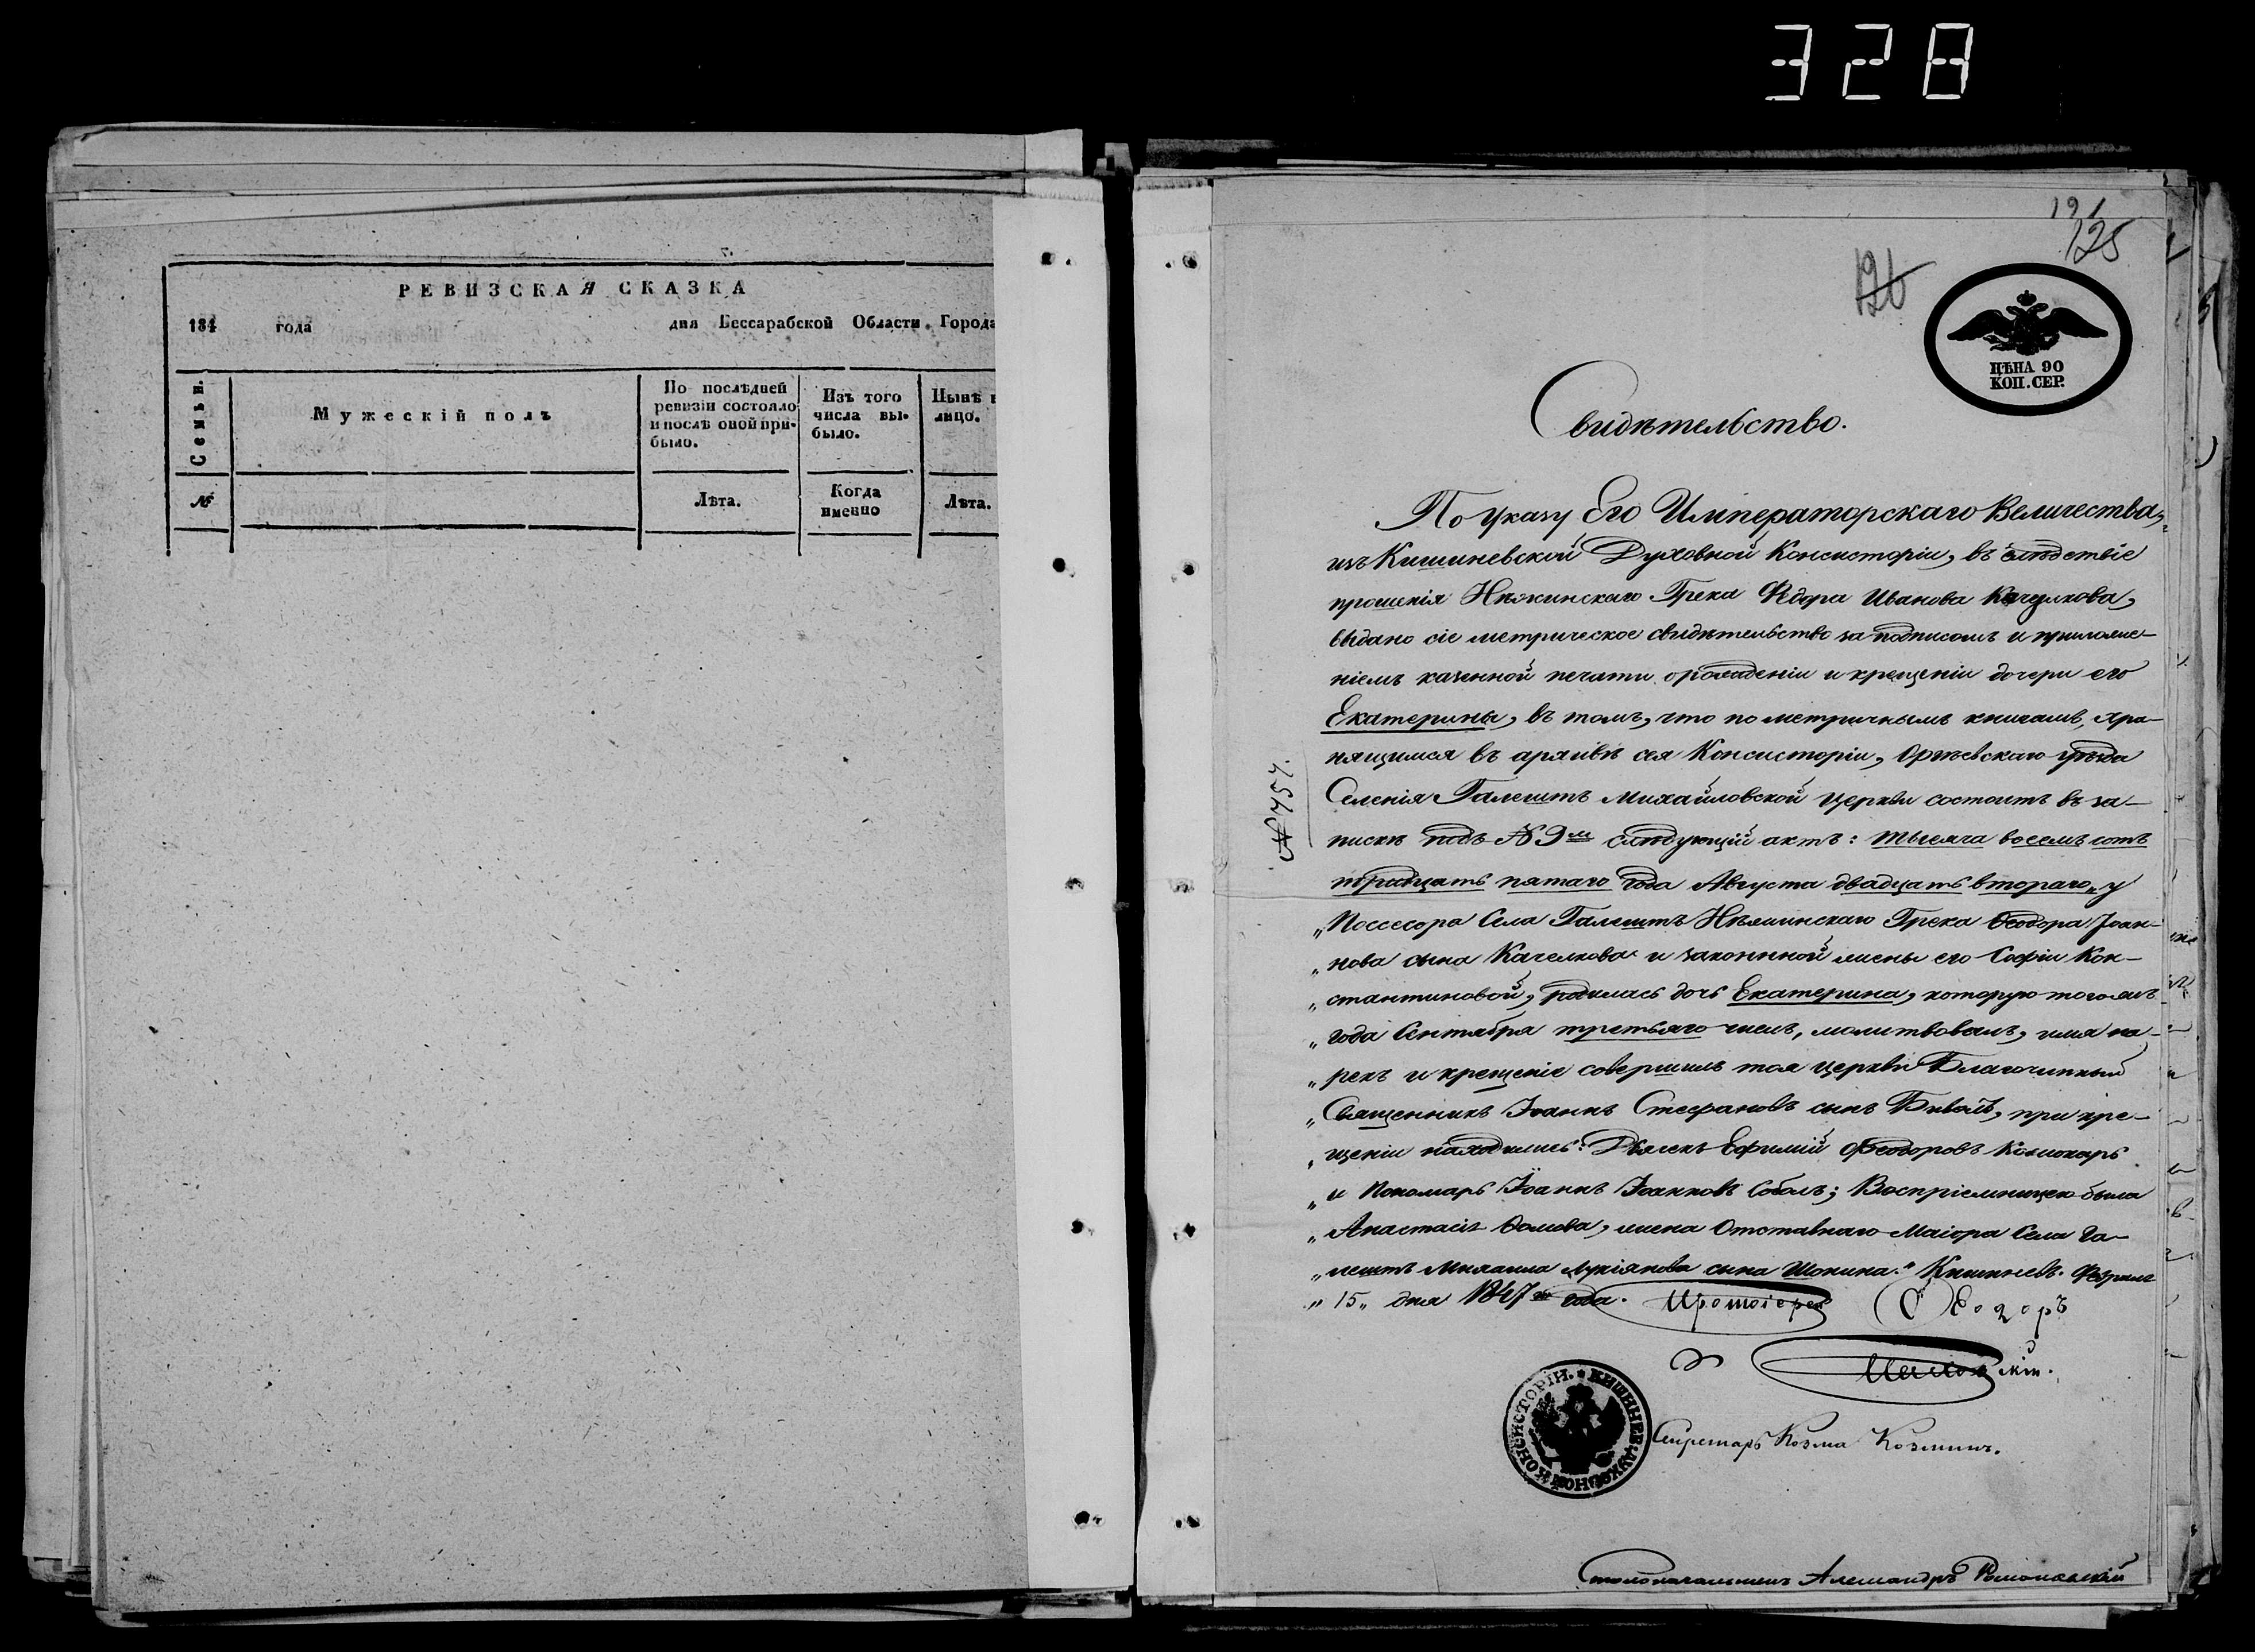 328
РЕВИЗСКАЯ СКАЗКА
184 года дня Бессарабской Области Города
Семьи.
Мужескій полъ
По послѣдней ревизіи состояло и послѣ оной прибыло.
Изъ того числа выбыло.
Нынѣ лицо.
№
Лѣта.
Когда именно
Лѣта.
191
125
126
ЦѢНА 90
КОП. СЕР.
Свидѣтельство.
По указу Его Императорскаго Величества,
изъ Кишиневской Духовной Консисторіи, въ слѣдствіе
прошенія Нѣжинскаго Грека Федора Иванова
выдано сіе метрическое свидѣтельство за подписомъ и приложе-
ніемъ казенной печати о рожденіи и крещеніи дочери его
Екатерины, въ томъ, что по метричнымъ книгамъ, хра-
нящимся въ архивѣ сея Консисторіи, Оргѣевскаго уѣзда
Селенія Галештъ Михайловской церкви состоитъ въ за-
пискѣ подъ № 9м слѣдующій актъ: тысяча восемь сотъ
тридцать пятаго года Августа двадцать втораго „у
„Поссесора Села Галештъ Нѣжинскаго Грека Ѳеодора Іоан-
„нова сына Качелкова и законнной жены его Софіи Кон-
„стантиновой, родилась дочь Екатерина, которую тогожъ
„года Сентября третьяго числъ, молитвовалъ, имя на-
„рекъ и крещеніе совершилъ тоя церкви Благочинный
„Священникъ Іоаннъ Стефановъ сынъ при кре-
„щеніи находились: Дьячекъ Ефимій Феодоровъ
„и Пономарь Іоаннъ Іоанновъ Воспріемницею была
„Анастасія жена Отставнаго Маіора Села Га-
„лештъ Михаила Лукіянова сына Шонина." Кишиневъ. Февраля
„15„ дня 1847го года. Протоіерей Ѳеодоръ
КИШИНЕВ. ДУХОВНОЙ КОНСИСТОРІИ.
Секретарь Козма Козминъ.
Столоначальникъ Александръ